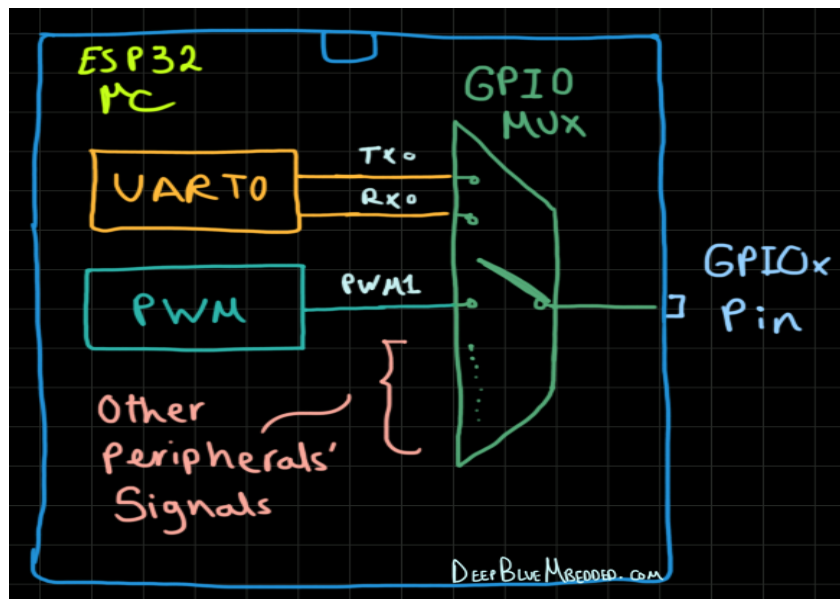 ESP32
μC
GPIO
MUX
TX0
UART0
RX0
PWM1
PWM
GPIOx
Pin
Other
Peripherals'
Signals
DeepBlueMbedded.com